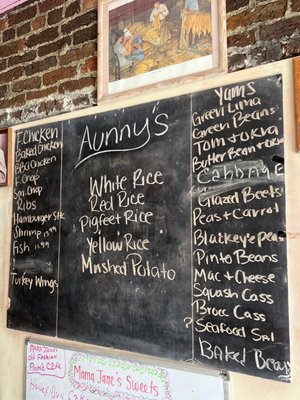 F. Chicken
Baked Chicken
BBQ Chicken
F. Chop
Smo. Chop
Ribs
Hamburger Stk
Shrimp 13.99
Fish 11.99
Turkey Wings
Aunny's
White Rice
Red Rice
Pigfeet Rice
Yellow Rice
Mashed Potato
Yams
Green Lima
Green Beans
Tom + Okra
Butter Bean + Okra
Cabbage
Glazed Beets
Peas + Carrot
Blackeye Peas
Pinto Beans
Mac + Cheese
Squash Cass
Brocc Cass
Seafood Sal
Baked Beans
Mama Jane's
Old Fashion
Mama Jane's Sweets